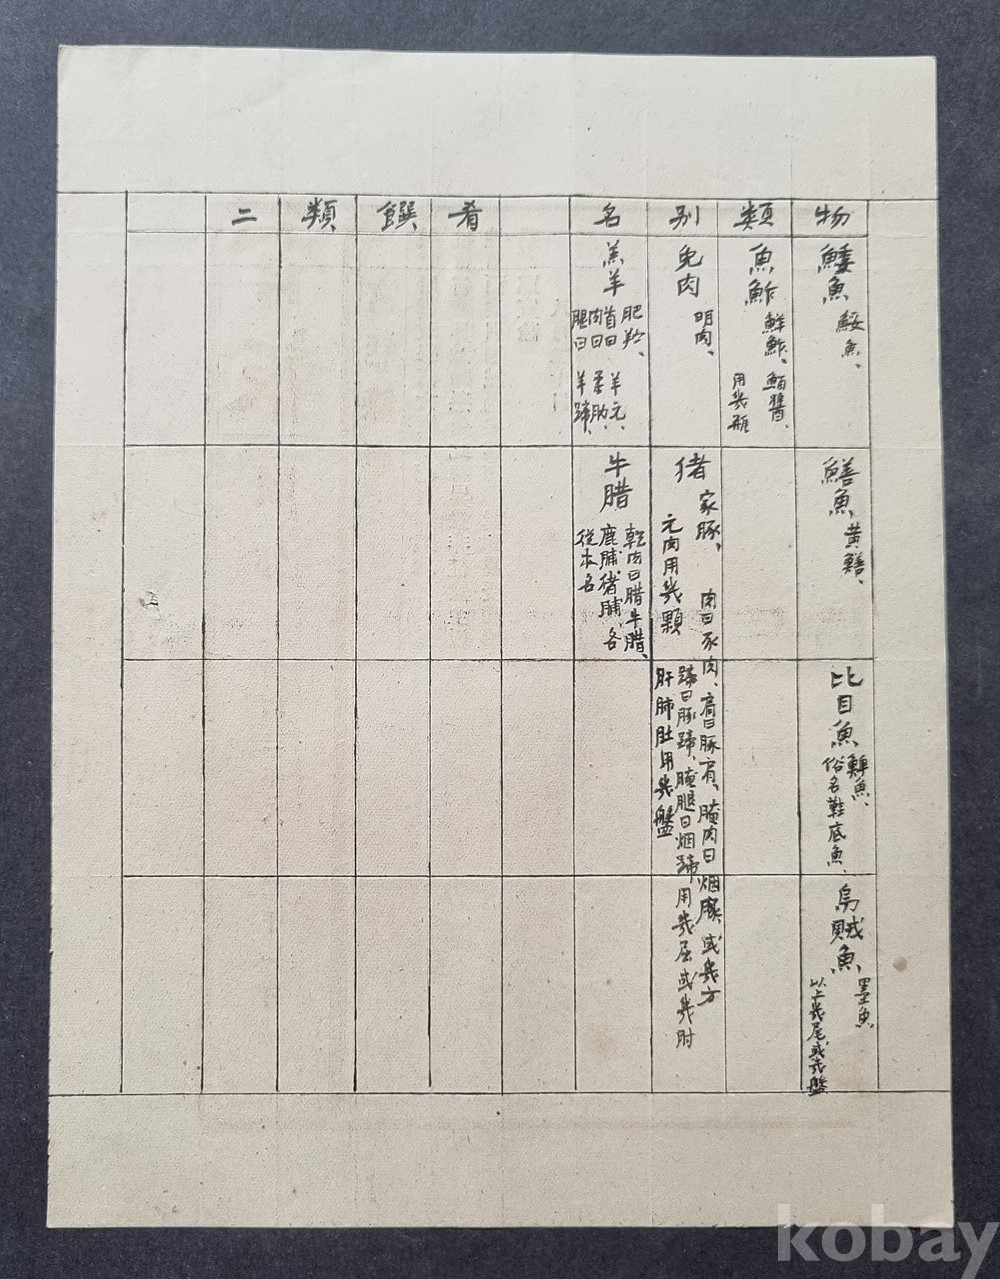 物類別名 肴饌類二
鯘魚 鮾魚、
鱔魚 黃鱔、
比目魚 鰈魚、
俗名鞋底魚、
烏賊魚 墨魚
以上幾尾或幾盤
魚鮓 鮮鮓、鮹醬、
用幾瓶
兔肉 明肉、
猪 家豚、肉曰豕肉、肩曰豚肩、腌肉曰烟豚、或幾方
蹄曰豚蹄、腌腿曰烟蹄用幾屈或幾肘
元肉用幾顆
肝肺肚用幾盤
羔羊 肥羜、羊元、
首曰
肉曰柔肋、
腿曰羊蹄、
牛腊 乾肉曰腊牛腊、
鹿脯、猪脯、各
從本名
kobay